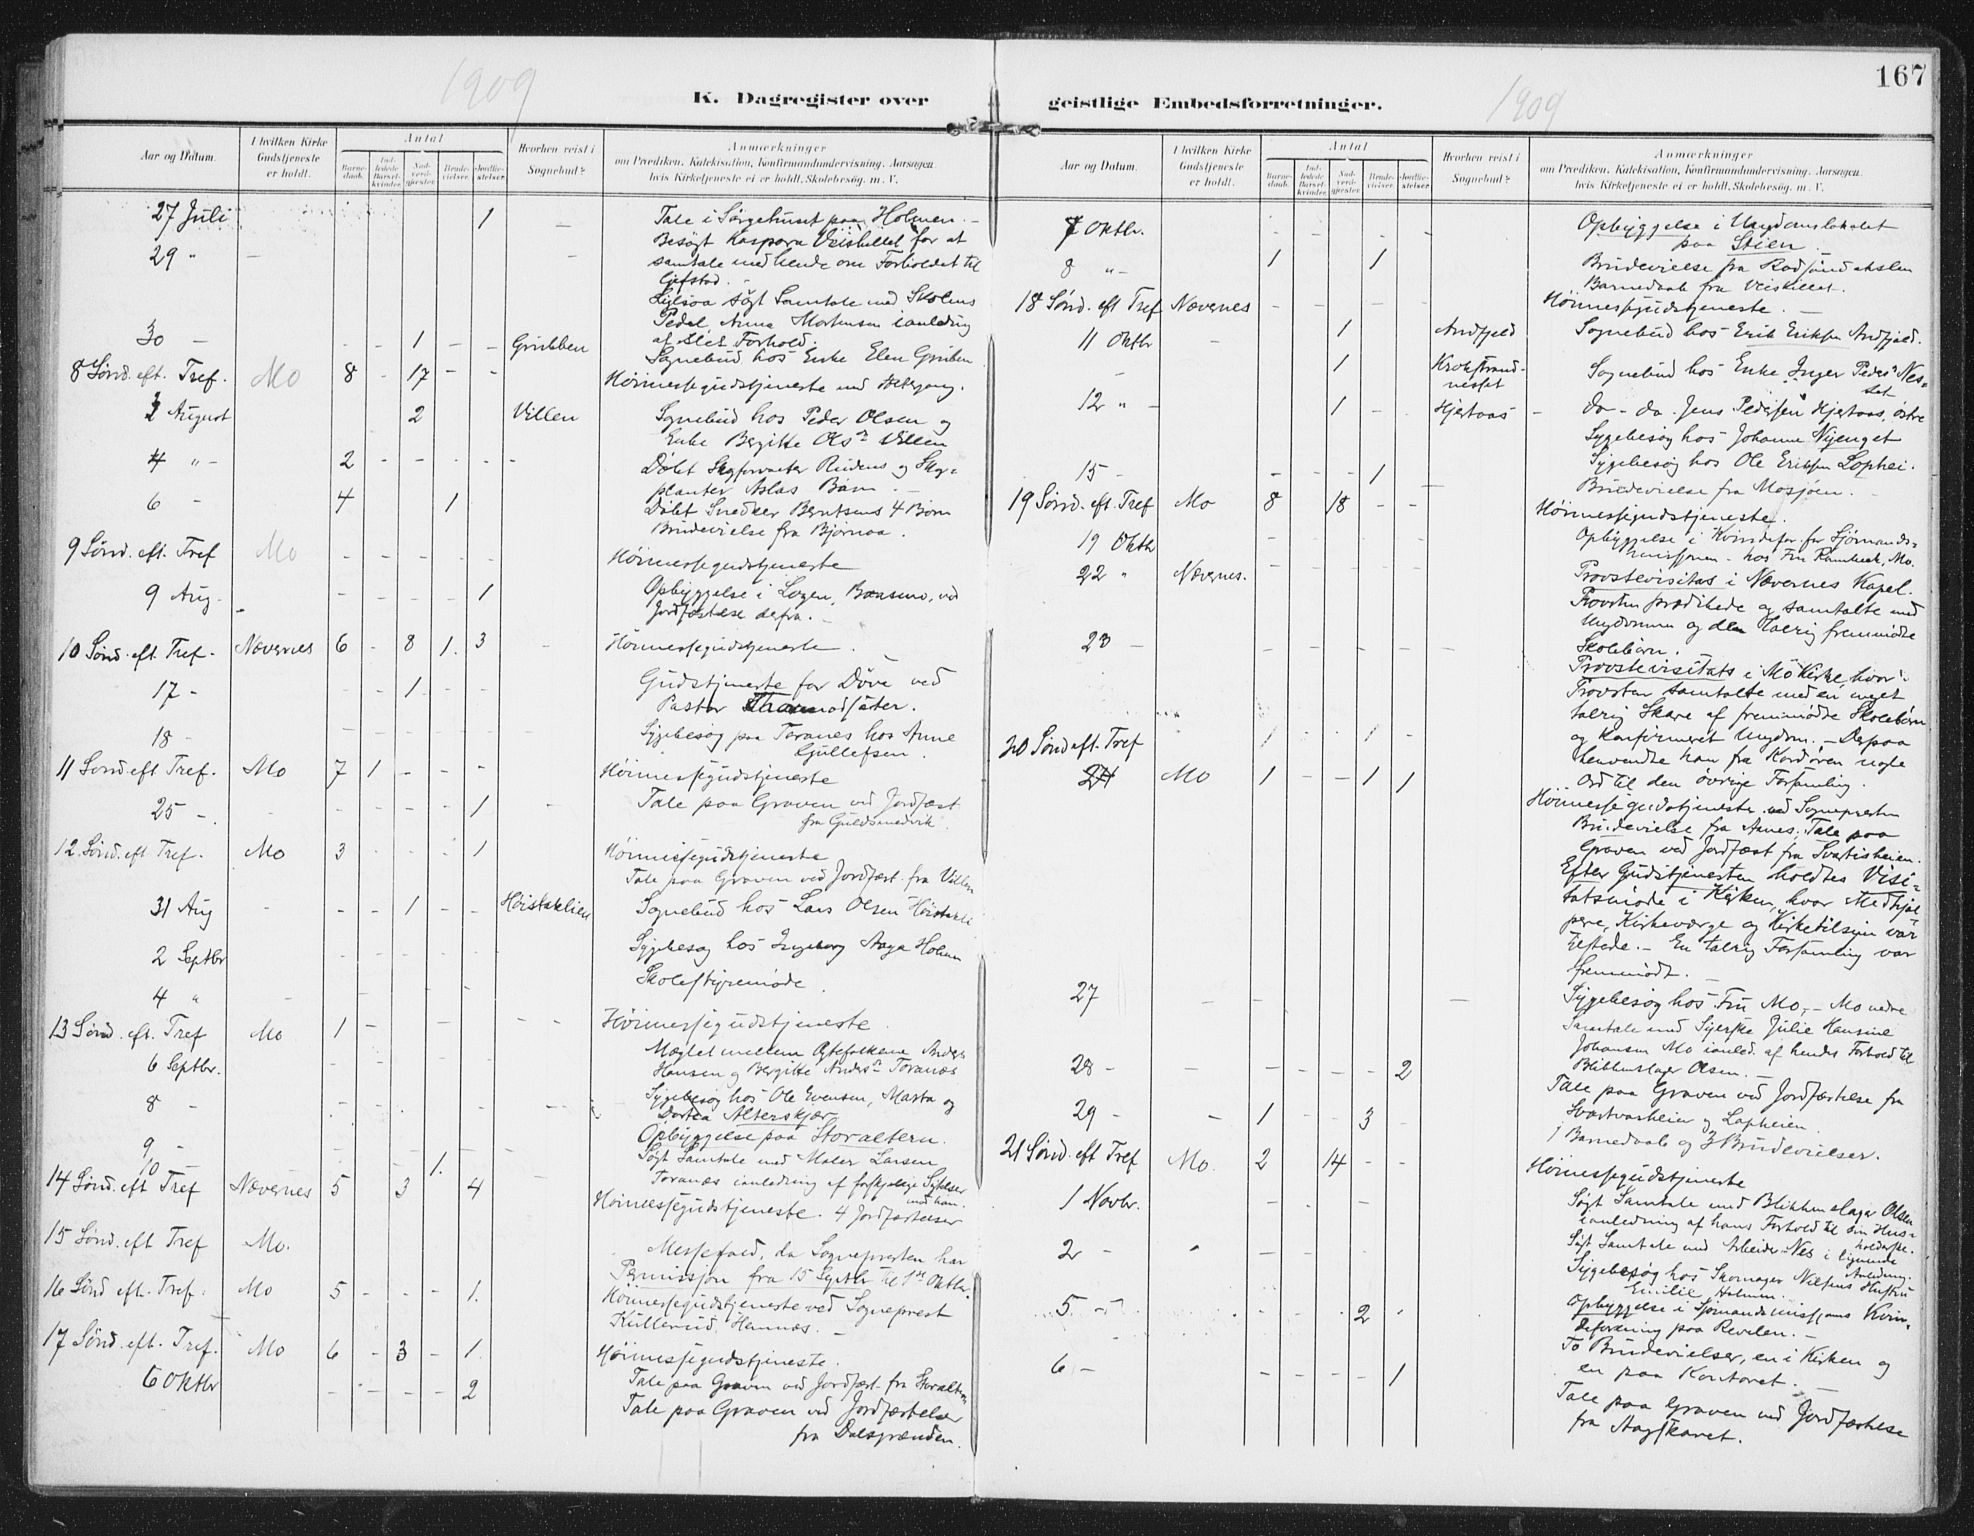 1909
K. Dagregister over
Aar og Datum.
I hvilken Kirke Gudstjeneste er holdt.
Antal
Barnedaab.
Indledede Barselkvinder.
Nadverdgjester.
Brudevielser.
Jordfæstelser.
Hvorhen reist i Sognebud?
Anmærkninger
om Prædiken, Katekisation, Konfirmandundervisning, Aarsagen, hvis Kirketjeneste ei er holdt, Skolebesøg, m. V.
27 Juli 1 Tale i Sørgehuset paa Holmen.
29 " Besøgt Kaspara Veiskillet for at
samtale med hende om Forholdet til
30 - 1 Grubben
af slet Forhold.
Sognebud hos Enke Elen Gruben
8 Sønd. eft. Tref. Mo 8 - 17 - - Høimessegudstjeneste med Altergang.
2 August 2 Villen Sognebud hos Peder Olsen og
Enke Bergitte Olsn Villen
4 " - 2 - - - -
6 - 4 1 Døbt Snedker Berntsens 4 Børn
Brudevielse fra Bjørnaa.
9 Sønd. eft. Tref Mo - - - - - Høimessegudstjeneste
9 Aug. - - - - 1 Opbyggelse i Logen, Baasmo, ved
Jordfæstelse defra.
10 Sønd. eft. Tref. Nævernes 6 - 8 1. 3 Høimessegudstjeneste.
17 - 1 Gudstjeneste for Døve ved
Pastor
18 - Sygebesøg paa Toranes hos Anne
Gullefsen.
11 Sønd eft Tref. Mo 7 1 - - - Høimessegudstjeneste
25 - 1 Tale paa Graven ved Jordfæst
fra Guldsmedvik.
12 Sønd. eft Tref. Mo 3 - - - 1 Høimessegudstjeneste
Tale paa Graven ved Jordfæst. fra Villen
31 Aug - - 1 - - Høistaklien Sognebud hos Lars Olsen
2 Septbr Sygebesøg hos Ingeborg Aaga Holmen
4 " Skolestyremøde.
13 Sønd. eft. Tref Mo 1 - Høimessegudstjeneste.
6 Septbr. Mæglet mellem Ægtefolkene Anders
Hansen og Bergitte Andersn Toranæs
8 - Sygebesøg hos Ole Evensen, Marta og
Dortea Alterskjær
9 - Opbyggelse paa Storaltern.
10 1. Søgt Samtale med Maler Larsen
14 Sønd. eft Tref Nævernes 5 3 4 Høimessegudstjeneste. 4 Jordfæstelser
15 Sønd. eft Tref Mo. Messefald, da Sognepresten har
Permission fra 15 Septbr til 1ste Oktbr.
16 Sønd eft. Tref. Mo 5 - - - 1. Høimessegudstjeneste ved Sogneprest
Kullerud, Hemnæs.
17 Sønd. eft. Tref. Mo 6 - 3 - 1. Høimessegudstjeneste.
6 Oktbr - - - - 2 Tale paa Graven ved Jordfæst. fra Storaltern
Tale paa Graven ved Jordfæstelser
fra Dalsgrænden.
167
1909
geistlige Embedsforretninger.
Aar og Datum.
I hvilken Kirke Gudstjeneste er holdt.
Antal
Barnedaab.
Indledede Barselkvinder.
Nadverdgjester.
Brudevielser.
Jordfæstelser.
Hvorhen reist i Sognebud?
Anmærkninger
om Prædiken, Katekisation, Konfirmandundervisning, Aarsagen, hvis Kirketjeneste ei er holdt, Skolebesøg, m. V.
7 Oktbr. - Opbyggelse i Ungdomslokalet
paa Stien.
8 " - 1 1
Barnedaab fra Veiskillet.
18 Sønd. eft Tref Nævernes - - - - - Høimessegudstjeneste.
11 Oktbr 1 Andfjeld Sognebud hos Erik Eriksen Andfjeld.
- 1 Krokstrandnesset Sognebud hos Enke Inger Peders Nesset
12 " - 1 - - Hjertaas do - do. Jens Pedersen Hjertaas, østre
Sygebesøg hos Johanne Nyenget
Sygebesøg hos Ole Eriksen Laphei.
15 - 1 Brudevielse fra Mosjøen.
19 Sønd. eft. Tref Mo 8 18 - - Høimessegudstjeneste.
19 Oktbr Opbyggelse i Kvindefor. for Sjømands-
missjonen hos Fru Rambeck, Mo.
22 " Nævernes. Provstevisitas i Nævernes Kapel.
Provsten prædikede og samtalte med
Ungdommen og den talrig fremmødte
Skolebørn.
23 - Provstevisitats i Mo Kirke, hvor
Provsten samtalte med en meget
talrig Skare af fremmødte Skolebørn
og konfirmeret Ungdom. - Derpaa
henvendte han fra Kordøren nogle
Ord til den øvrige Forsamling.
20 Sønd eft. Tref - 1 - 1 -
24 Mo 1 - 1 1 Høimessegudstjeneste ved Sognepresten
Brudevielse fra Aanes. Tale paa
Graven ved Jordfæst fra Svartisheien.
Efter Gudstjenesten holdtes Visi-
tatsmøde i Kirken, hvor Medhjæl-
pere, Kirkeværge og Kirketilsyn var
tilstede. - En talrig Forsamling var
fremmødt.
27 Sygebesøg hos Fru Mo, - Mo nedre
Samtale med Syerske Julie Hansine
Johansen Mo ianled. af hendes Forhold til
Blikkenslager Olsen.
28 - 2 Tale paa Graven ved Jordfæstelse fra
Svartvasheien og Lapheien.
29 - 1 3 1 Barnedaab og 3 Brudevielser.
21 Sønd. eft Tref Mo. 2 14 - - Høimessegudstjeneste
1 Novbr. Søgt Samtale med Blikkenslager Olsen
ianledning af hans Forhold til sin Hus-
holderske.
2 - Søgt Samtale med Arbeider Nes i lignende
Anledning.
Sygebesøg hos Skomager Nilsens Hustru
Emilie Holmen.
5 - 2 Opbyggelse i Sjømandsmissjons Kvin-
deforening paa Revelen. -
To Brudevielser, en i Kirken og
en paa Kontoret.
6 - 1 Tale paa Graven ved Jordfæstelse
fra Aagskaret.